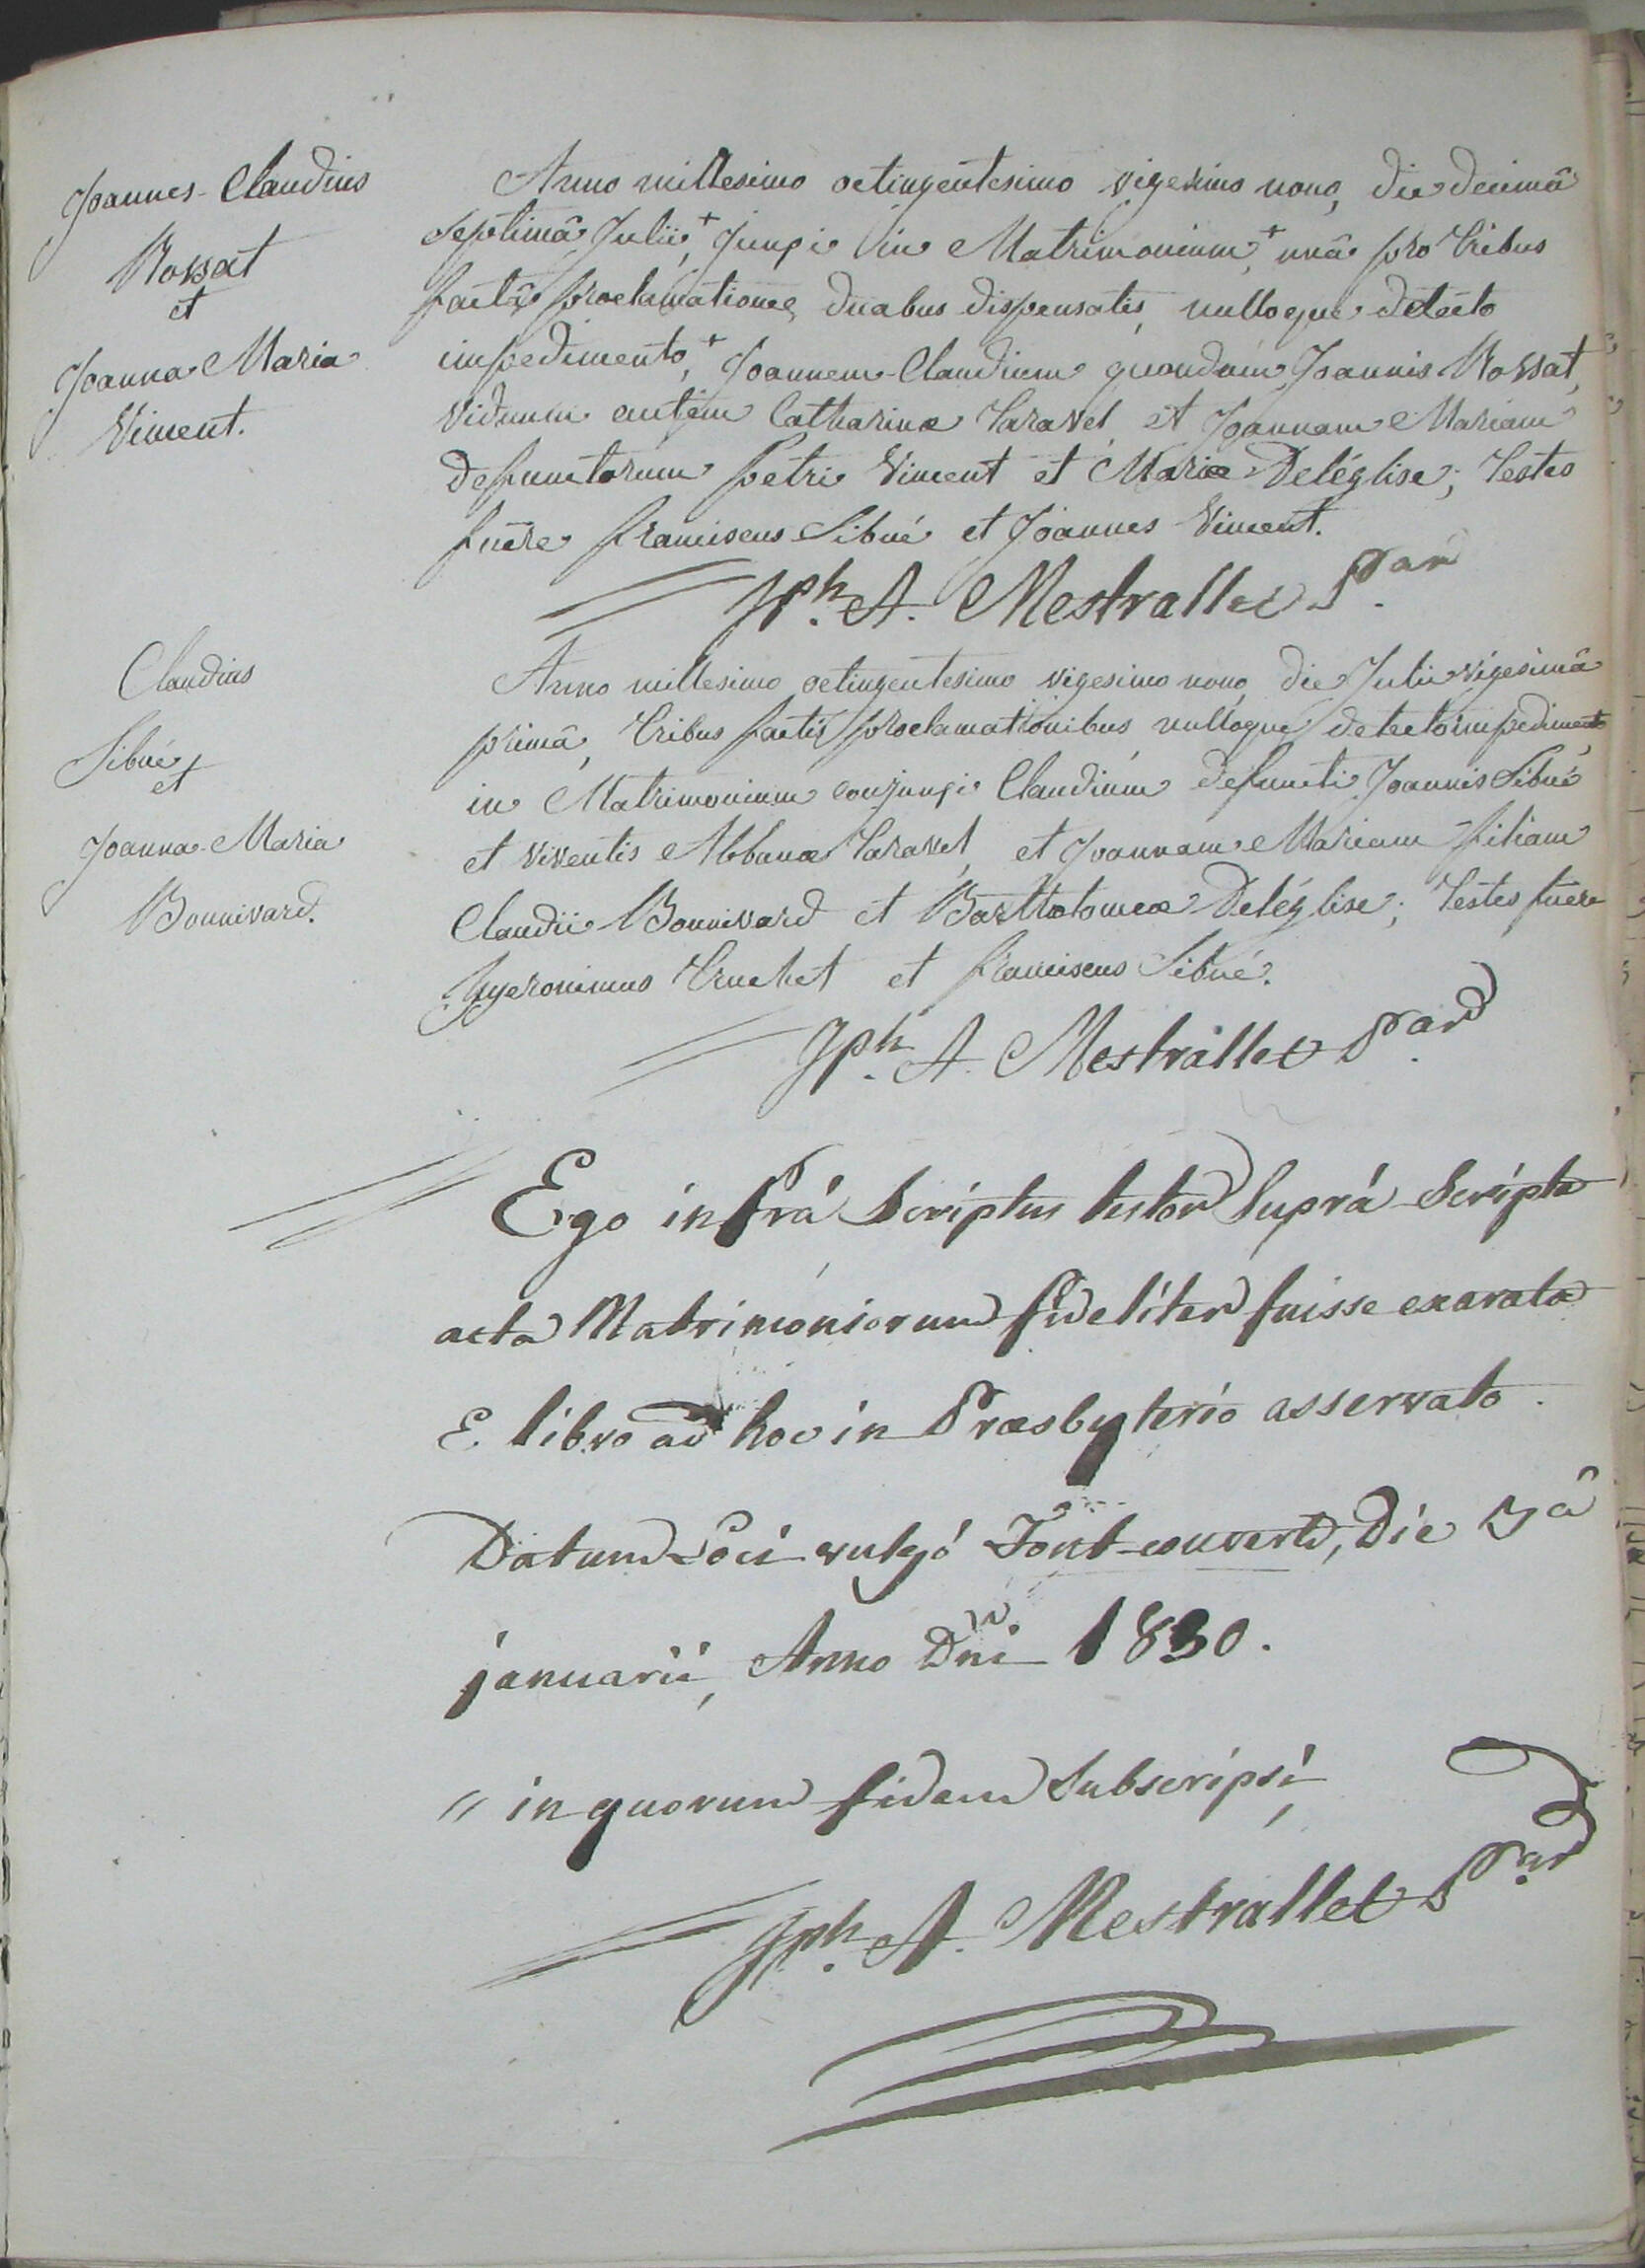 Joannes-Claudius
Rossat
et
Joanna Maria
Vincent.
Anno millesimo octingentesimo vigesimo nono, die decimâ
septimâ Julii,+ junxi in Matrimonium,+ unâ pro tribus
factâ proclamatione, duabus dispensatis, nulloque detecto
impedimento,+ Joannem-Claudium quondam Joannis Rossat,
viduum autem Catharinæ Taravel, et Joannam Mariam
defunctorum petri Vincent et Mariæ Deléglise; Testes
fuêre franciscus Sibué et Joannes Vincent.
Jph. A. Mestrallet
Claudius
Sibué
et
Joanna-Maria
Bonnivard.
Anno millesimo octingentesimo vigesimo nono, die Julii vigesimâ
primâ, tribus factis proclamationibus nulloque detecto impedimento
in Matrimonium conjunxi Claudium defuncti Joannis Sibué
et viventis Albanæ Taravel, et Joannam Mariam filiam
Claudii Bonnivard et Bartholomeæ Deléglise; Testes fuêre
hyeronimus Truchet et franciscus Sibué.
Jph. A. Mestrallet
Ego infrá scriptus testor suprá scripta
acta Matrimoniorum fideliter fuisse exarata
E libro ad hoc in Præsbyterio asservato.
Datum Loci vulgó Font-couvert, Die
januarii, Anno Dni 1830.
" in quorum fidem subscripsi,
Jph. A. Mestrallet